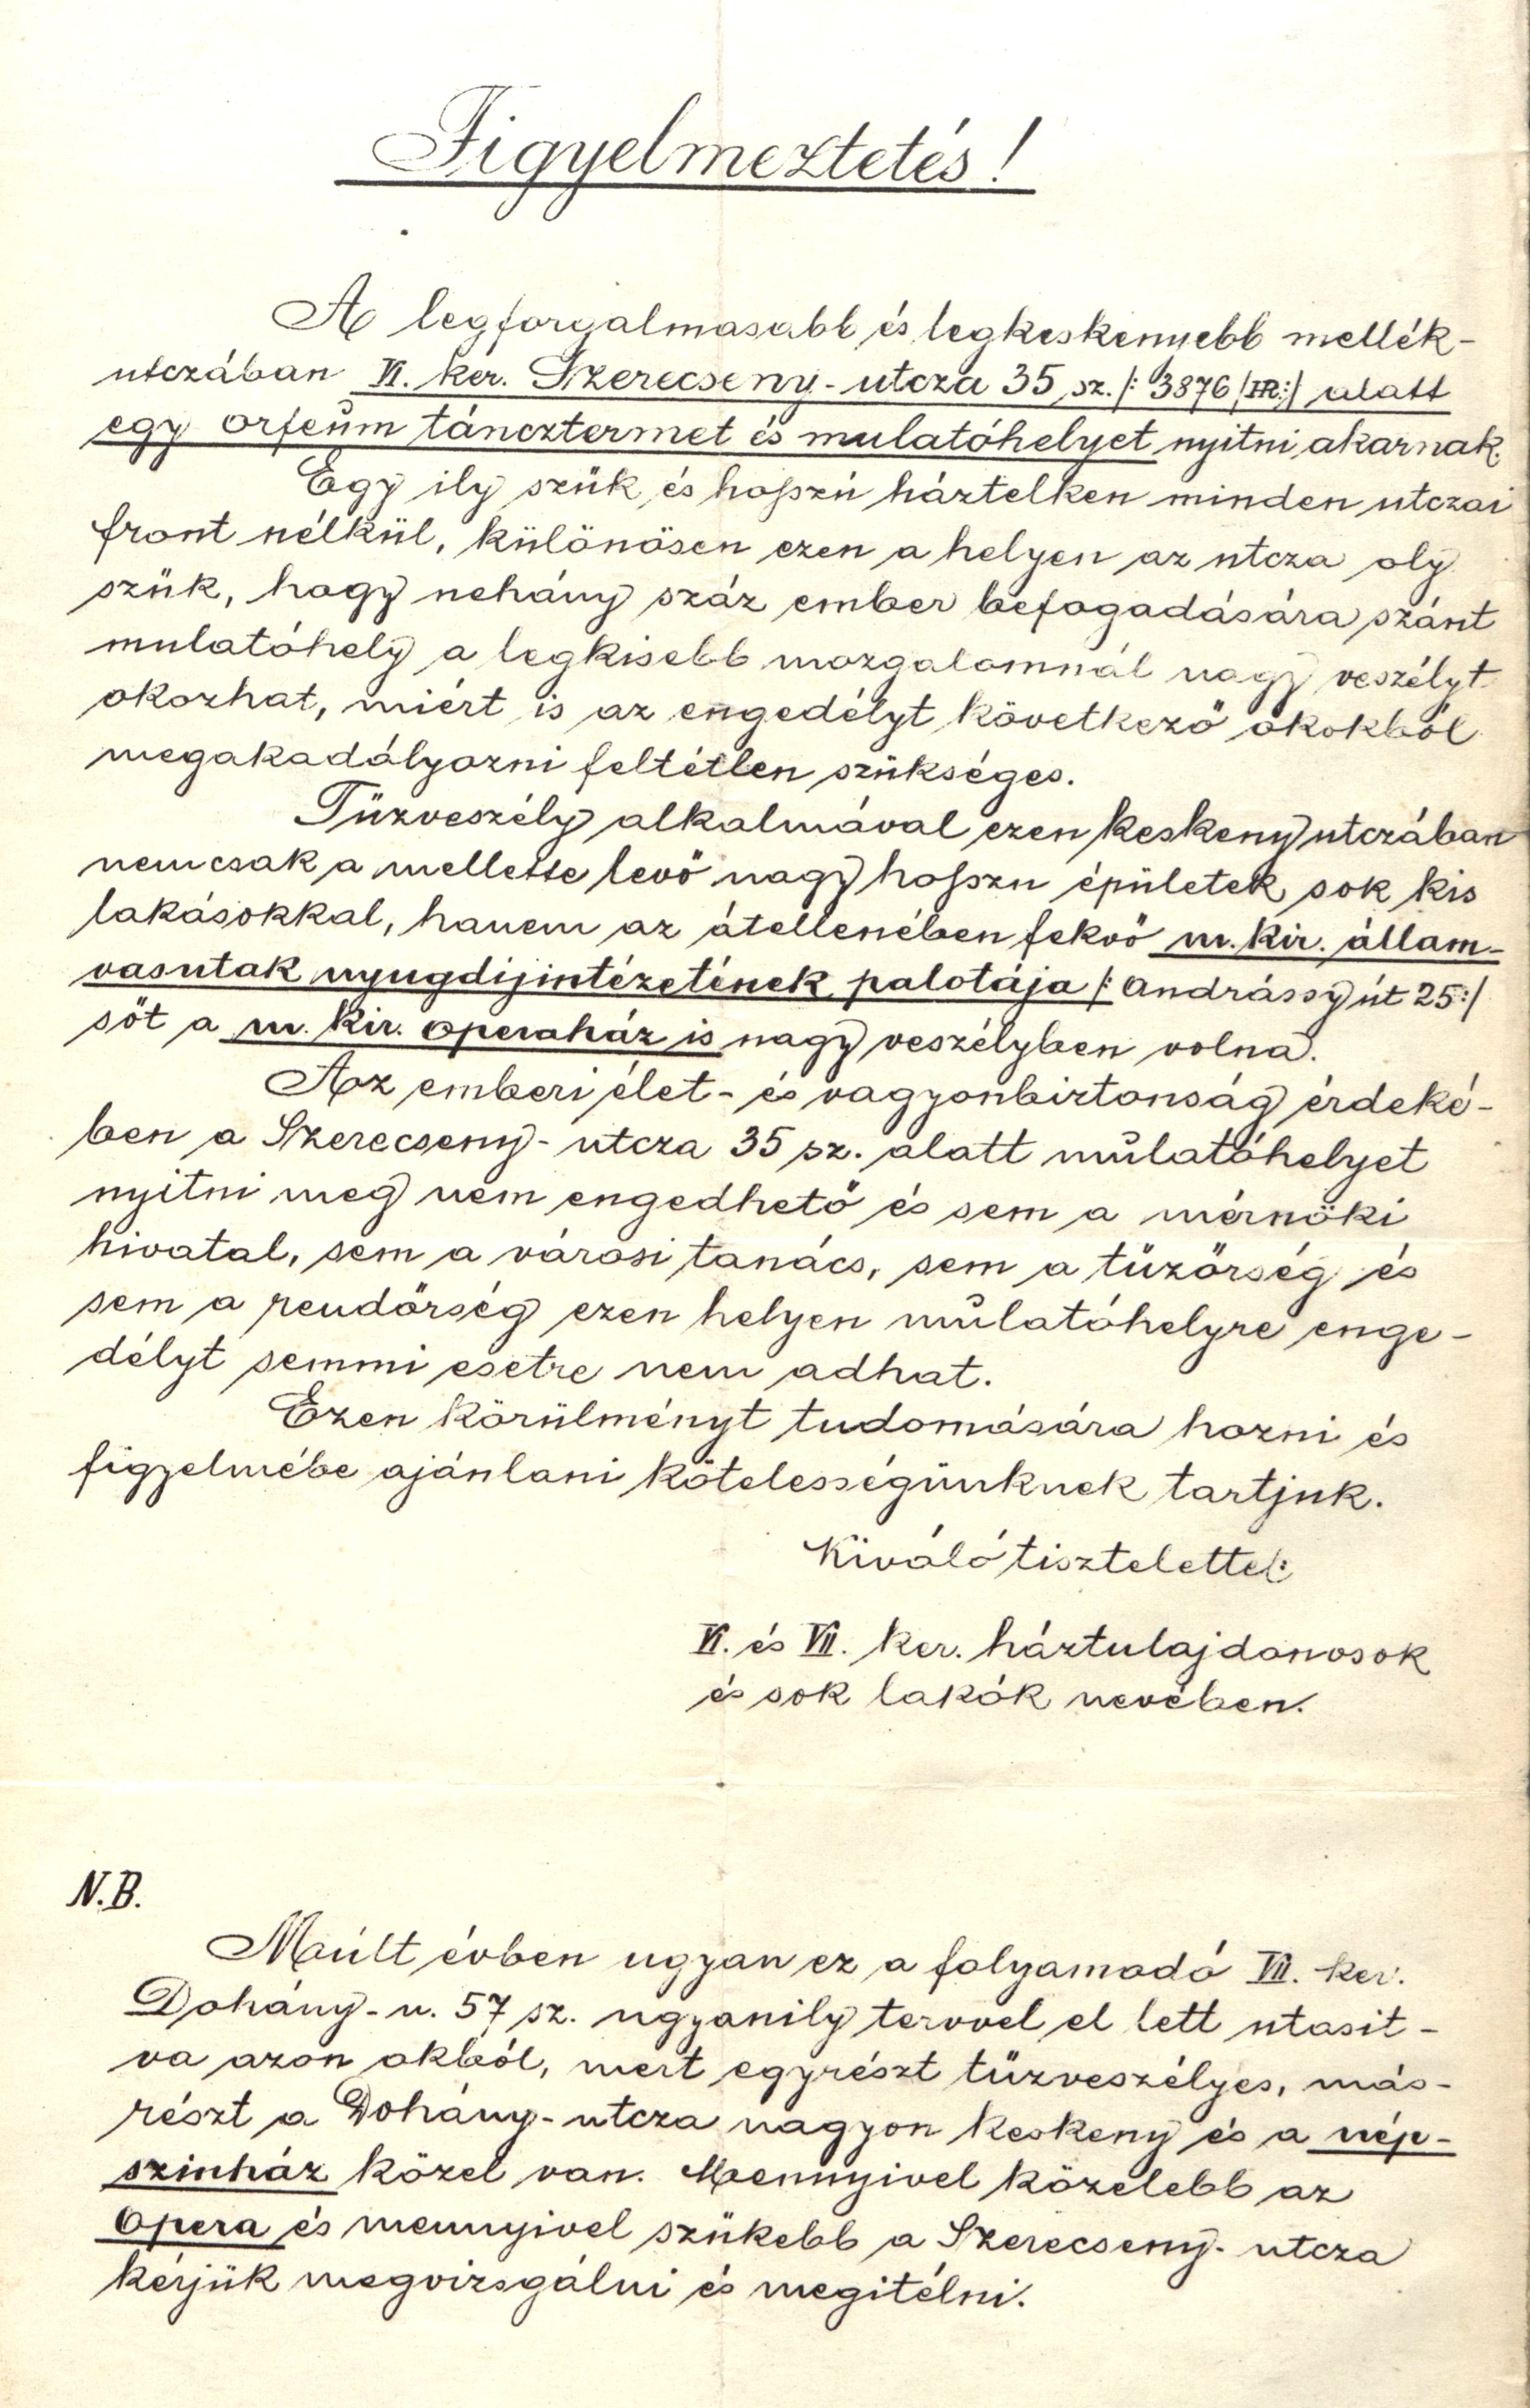 Figyelmeztetés!
A legforgalmasabb és legkeskenyebb mellék-
utczában VI. ker. Szerecseny-utcza 35 sz. /: 3876/HR:/ alatt
egy orfeum táncztermet és mulatóhelyet nyitni akarnak.
Egy ily szük és hosszú háztelken minden utczai
front nélkül, különösen ezen a helyen az utcza oly
szük, hogy nehány száz ember befogadására szánt
mulatóhely a legkisebb mozgalomnál nagy veszélyt
okozhat, miért is az engedélyt következő okokból
megakadályozni feltétlen szükséges.
Tüzveszély alkalmával ezen keskeny utczában
nemcsak a mellette levő nagy hosszu épületek sok kis
lakásokkal, hanem az átellenében fekvő m. kir. állam-
vasutak nyugdijintézetének palotája /: Andrássy út 25:/
sőt a m. kir. operaház is nagy veszélyben volna.
Az emberi élet- és vagyonbiztonság érdeké-
ben a Szerecseny-utcza 35 sz. alatt mulatóhelyet
nyitni meg nem engedhető és sem a mérnöki
hivatal, sem a városi tanács, sem a tüzőrség és
sem a rendőrség ezen helyen mulatóhelyre enge-
délyt semmi esetre nem adhat.
Ezen körülményt tudomására hozni és
figyelmébe ajánlani kötelességünknek tartjuk.
Kiváló tisztelettel:
VI. és VII. ker. háztulajdonosok
és sok lakók nevében.
N.B.
Múlt évben ugyan ez a folyamodó VII. ker.
Dohány-u. 57 sz. ugyanily tervvel el lett utasit-
va azon okból, mert egyrészt tüzveszélyes, más-
részt a Dohány-utcza nagyon keskeny és a nép-
szinház közel van. Mennyivel közelebb az
Opera és mennyivel szükebb a Szerecseny-utcza
kérjük megvizsgálni és megitélni.